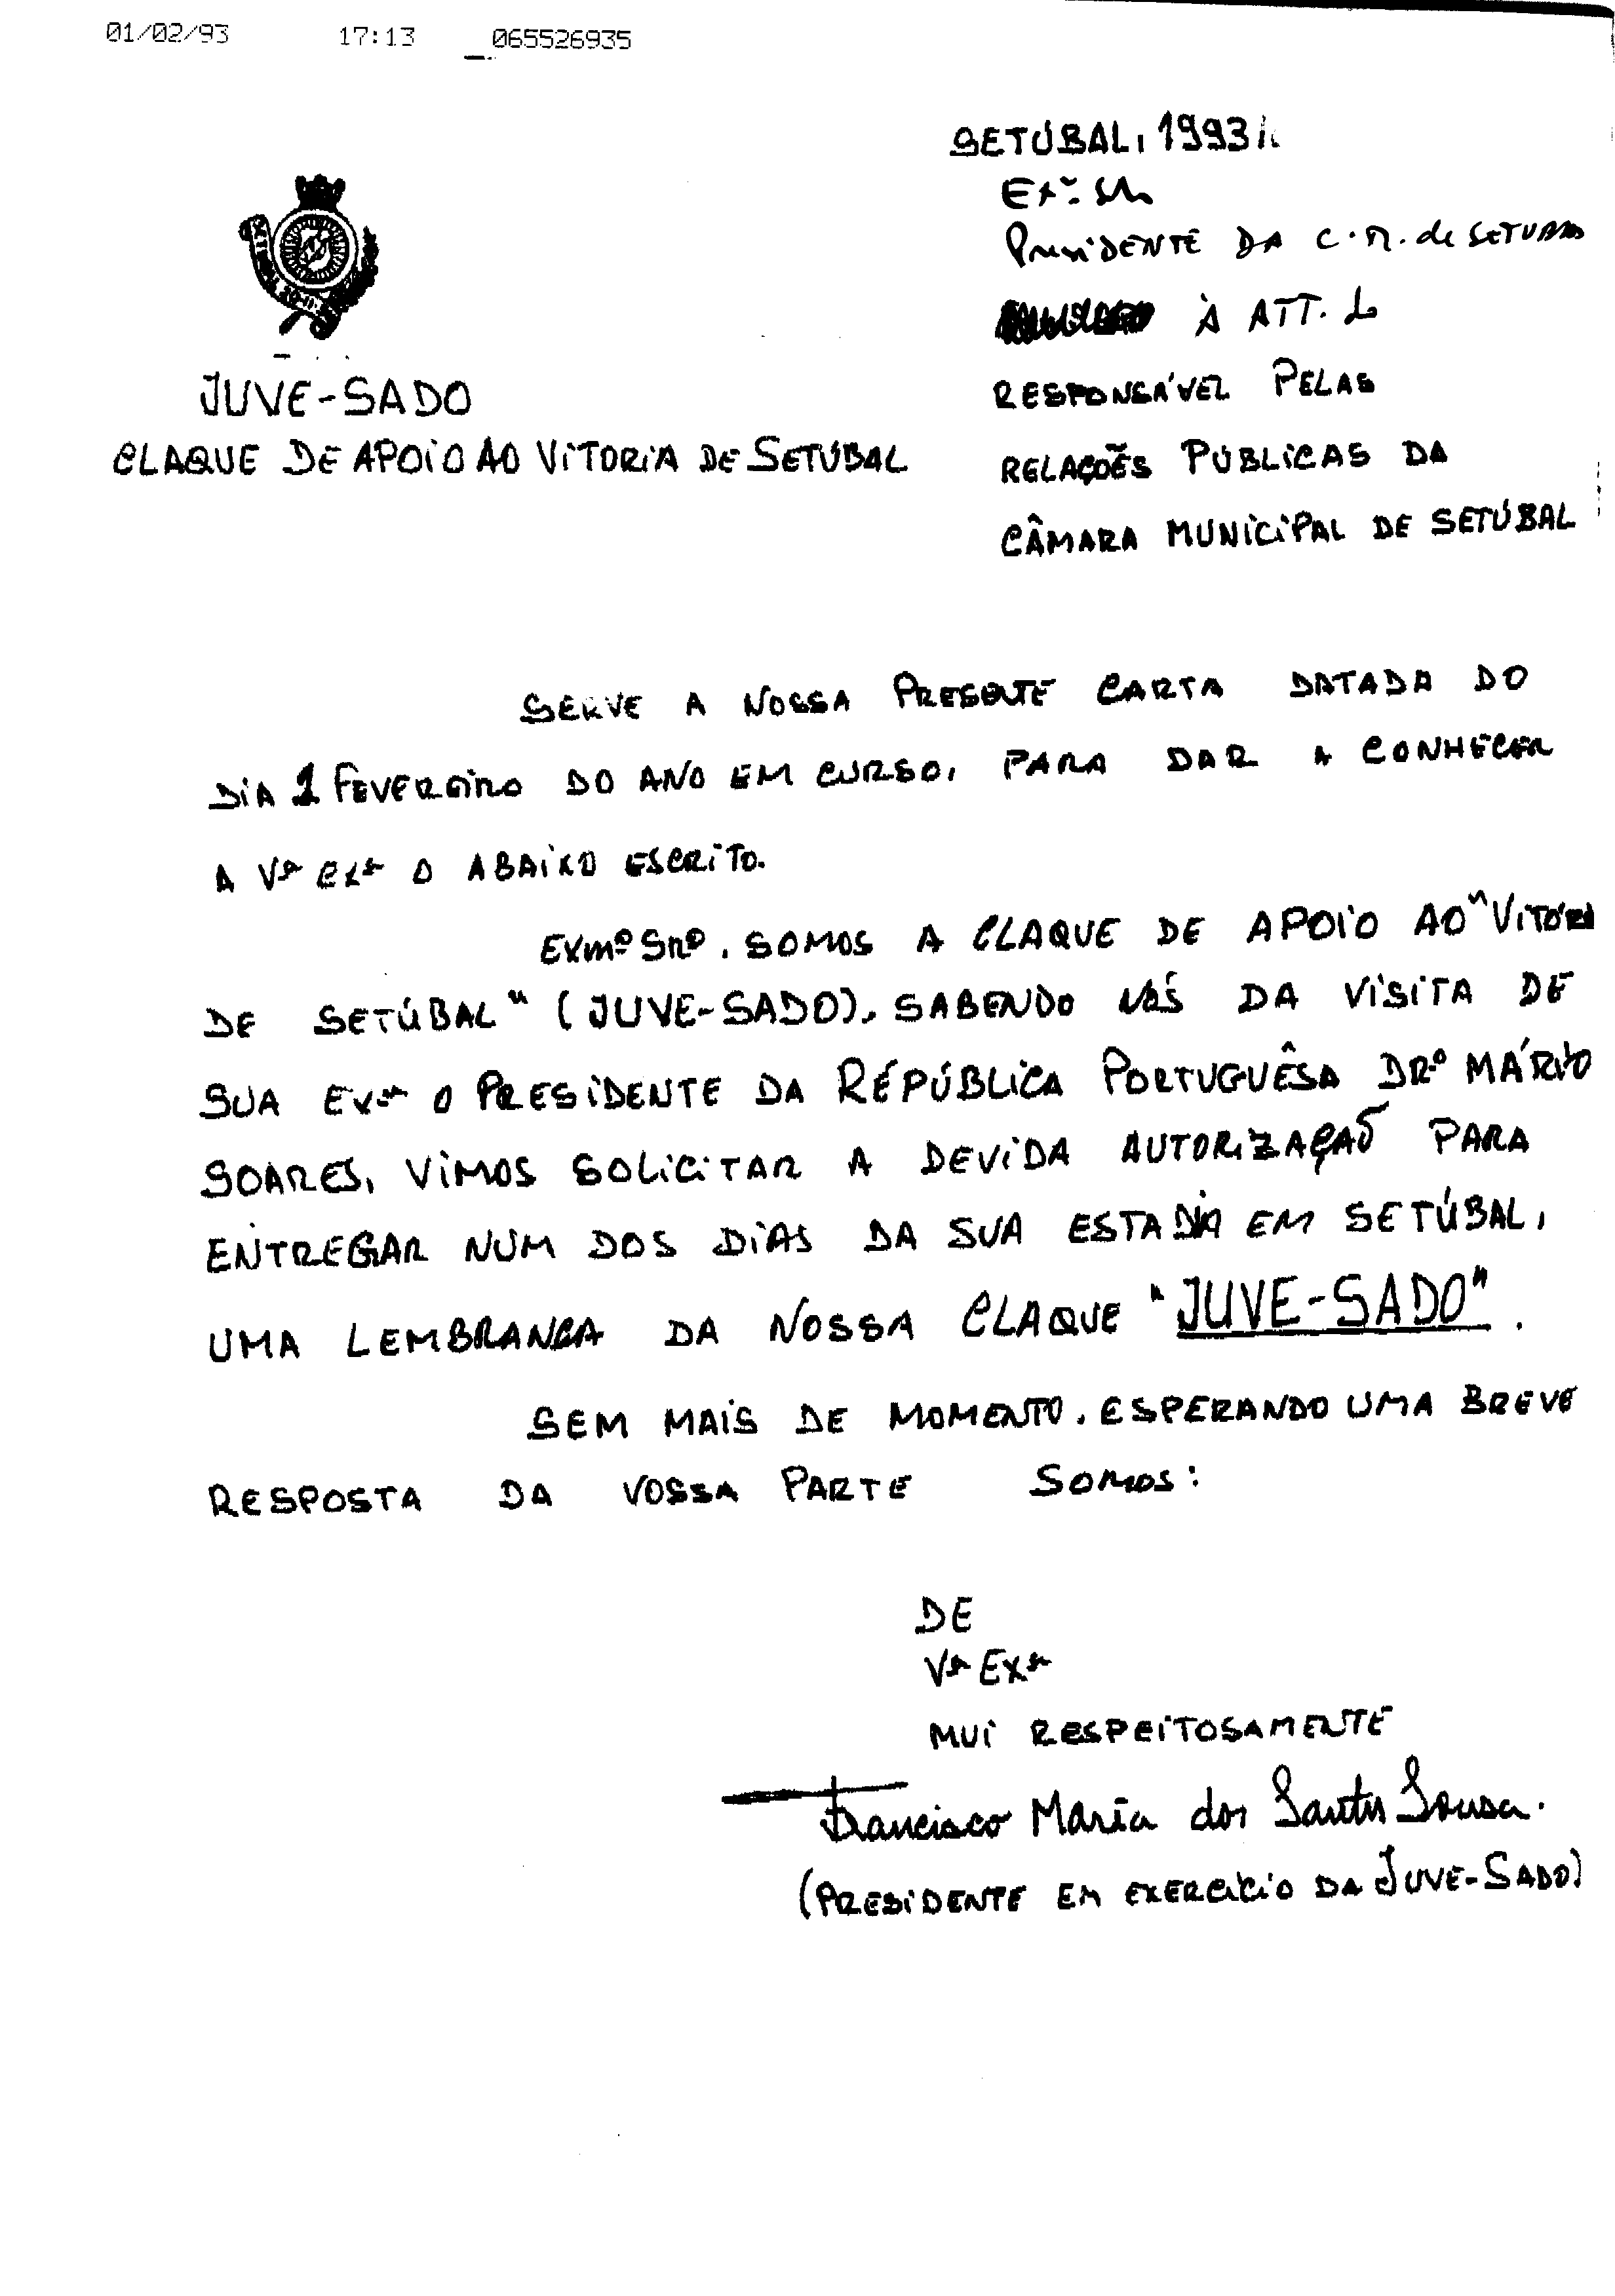 01/02/93 17:13 065526935
SETÚBAL, 1993/
Exº. Sr
PresiDENTE DA C.M. de SETUBAL
À ATT. Do
RESPONSÁVEL PELAS
RELAÇÕES PÚBLICAS DA
CÂMARA MUNICIPAL DE SETÚBAL
JUVE-SADO
CLAQUE DE APOIO AO VITORIA DE SETÚBAL
SERVE A NOSSA PRESENTE CARTA DATADA DO
DIA 1 FEVEREIRO DO ANO EM CURSO, PARA DAR A CONHECER
A Vª EXª O ABAIXO ESCRITO.
EXmº Snº. SOMOS A CLAQUE DE APOIO AO "VITÓRI
DE SETÚBAL" (JUVE-SADO), SABENDO NÓS DA VISITA DE
SUA EXª O PRESIDENTE DA RÉPÚBLICA PORTUGUÊSA DRº MÁRIO
SOARES, VIMOS SOLICITAR A DEVIDA AUTORIZAÇAÕ PARA
ENTREGAR NUM DOS DIAS DA SUA ESTADIA EM SETÚBAL,
UMA LEMBRANCA DA NOSSA CLAQUE "JUVE-SADO".
SEM MAIS DE MOMENTO. ESPERANDO UMA BREVE
RESPOSTA DA VOSSA PARTE SOMOS:
DE
Vª EXª
MUI RESPEITOSAMENTE
Francisco Maria dos Santos Sousa.
(PRESIDENTE EM EXERCICIO DA JUVE-SADO)